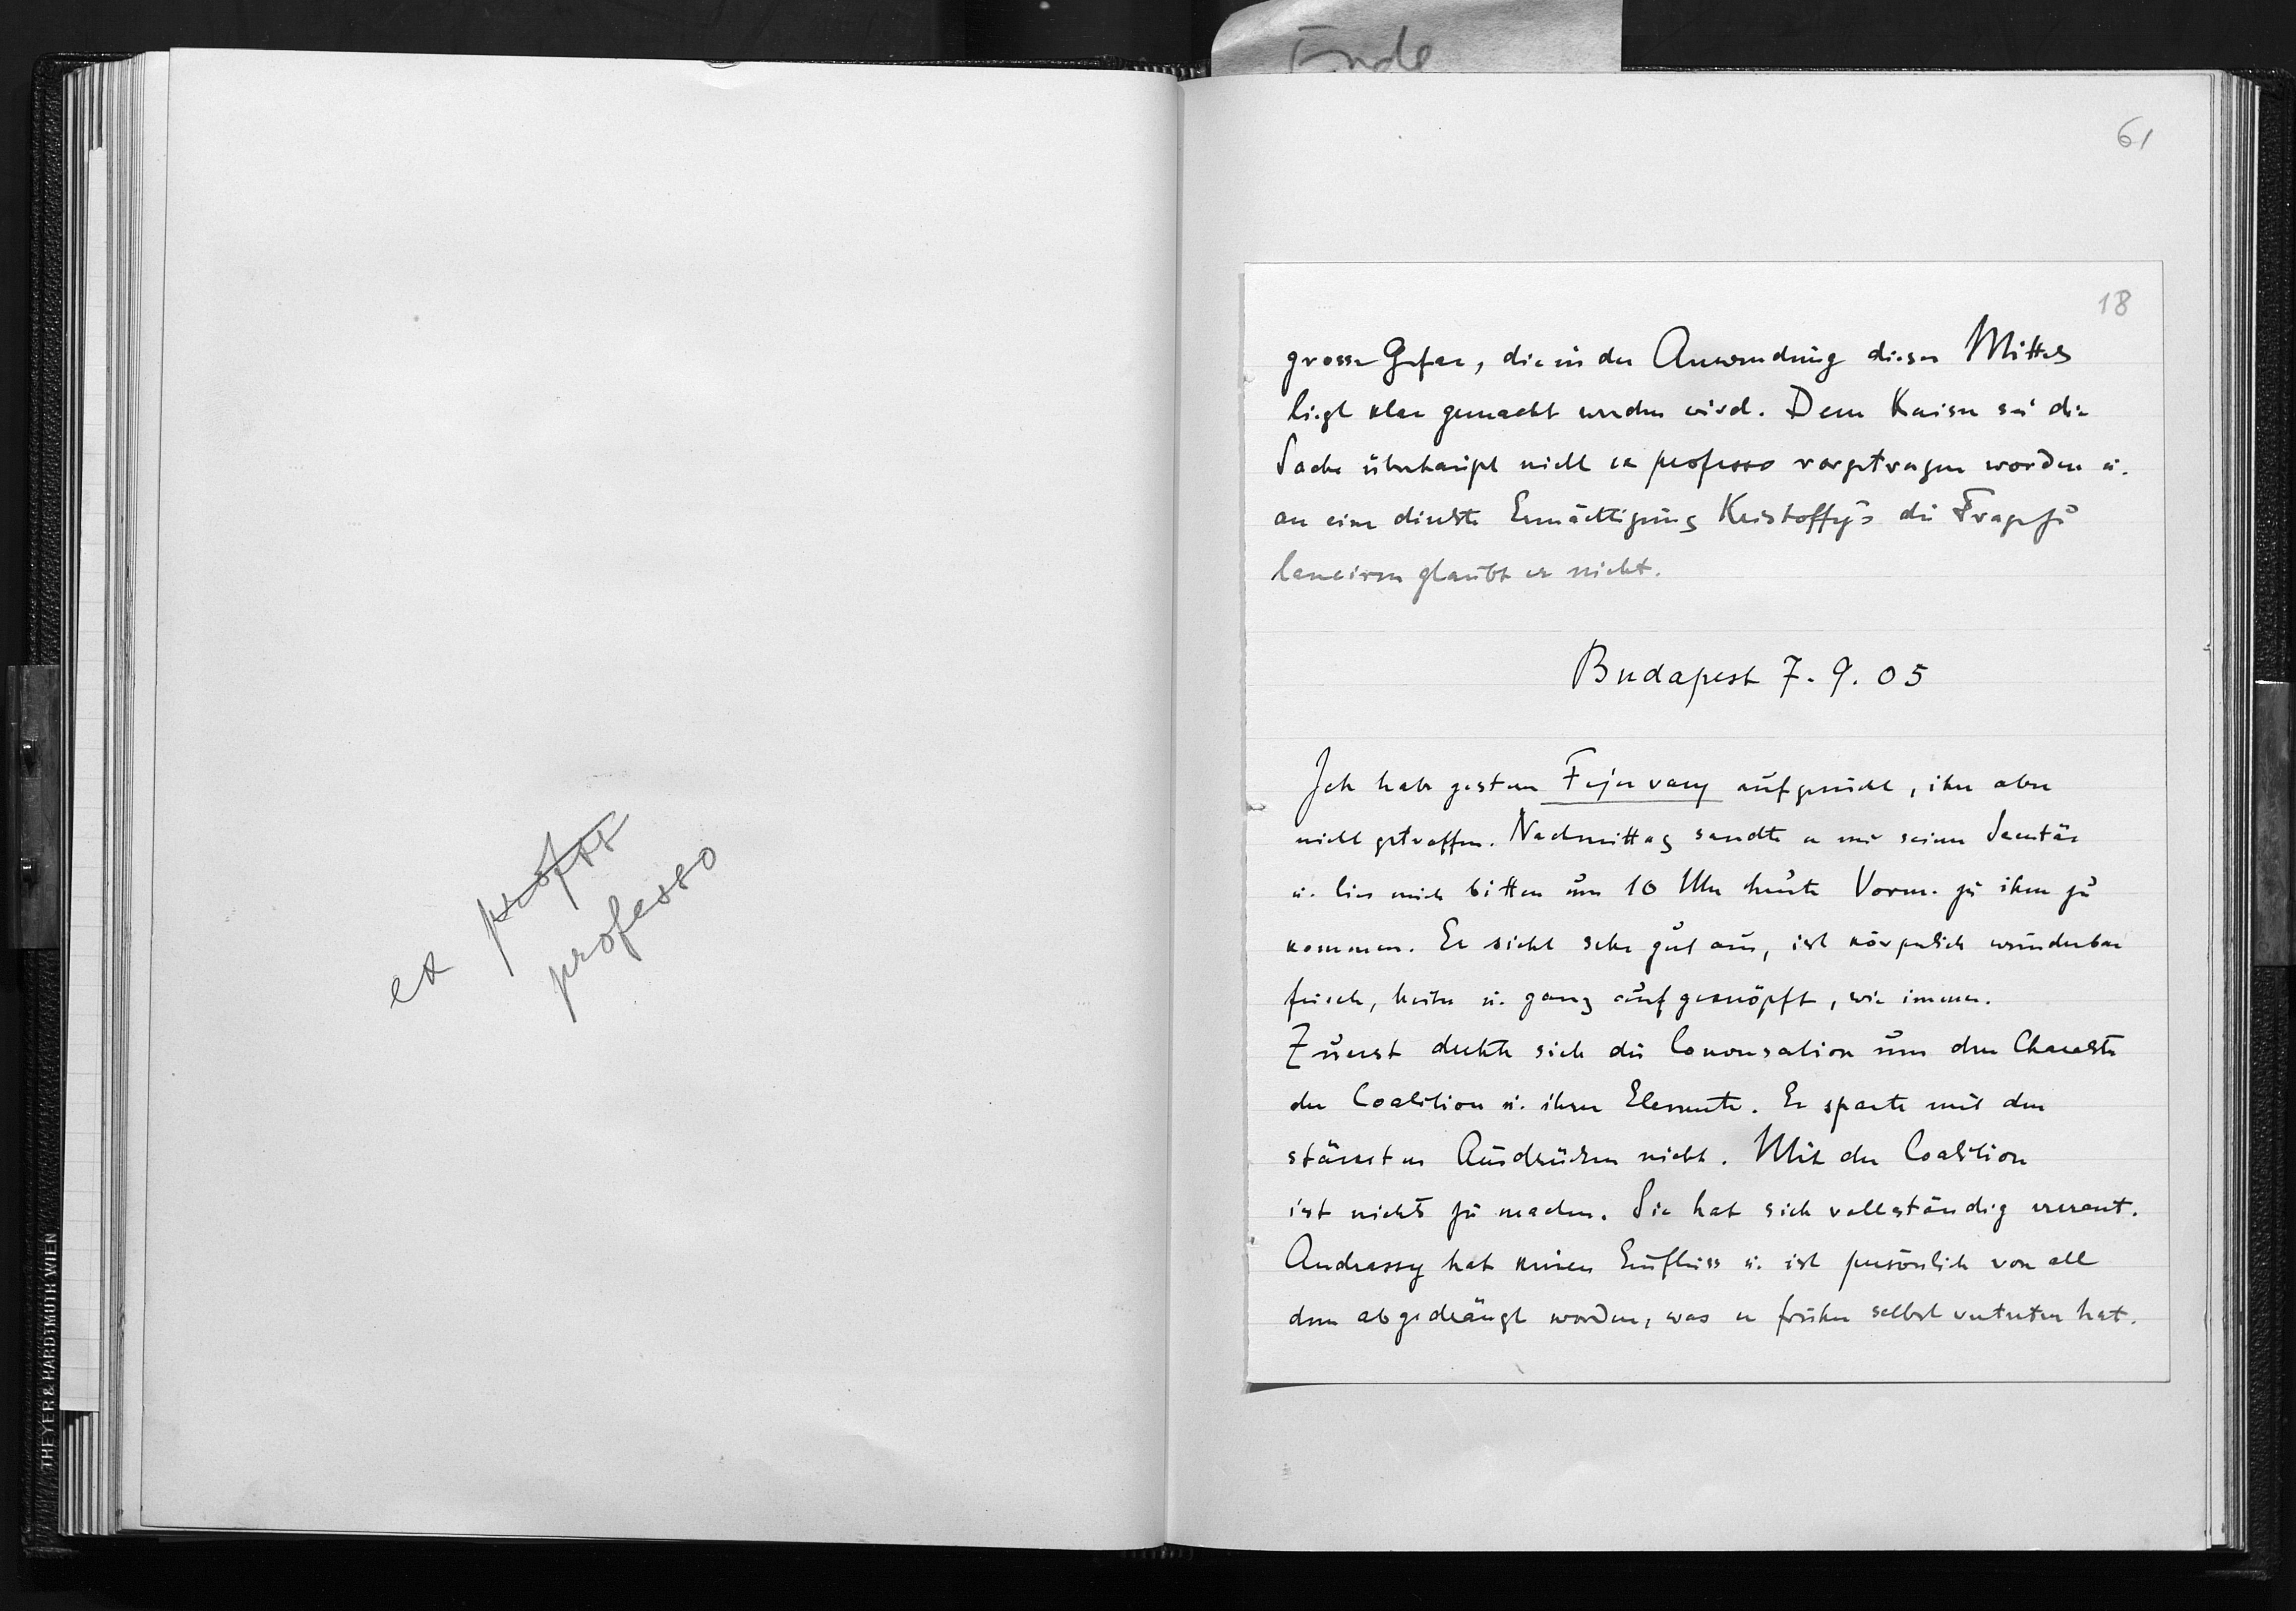 Ende
ex profess
professo
THEYER & HARDTMUTH WIEN
61
18
grosse Gefar, die in der Anwendung dieser Mittels
liegt klar gemacht werden wird. Dem Kaiser sei die
Sache überhaupt nicht ex professo vorgetragen worden u.
an eine direkte Ermächtigung Kristoffy's die Frage zu
lanciren glaubt er nicht.
Budapest 7. 9. 05
Ich habe gestern Fejervary aufgesucht, ihn aber
nicht getroffen. Nachmittag sandte er mir seinen Secretär
u. lies mich bitten um 10 Uhr heute Vorm. zu ihm zu
kommen. Er sieht sehr gut aus, ist körperlich wunderbar
frisch, heiter u. ganz aufgeknöpft, wie immer.
Zuerst drehte sich die Conversation um den Charakter
der Coalition u. ihrer Elemente. Er sparte mit den
stärksten Ausdrücken nicht. Mit der Coalition
ist nichts zu machen. Sie hat sich vollständig verrant.
Andrassy hat keinen Einfluss u. ist persönlich von all
dem abgedrängt worden, was er früher selbst vertreten hat.